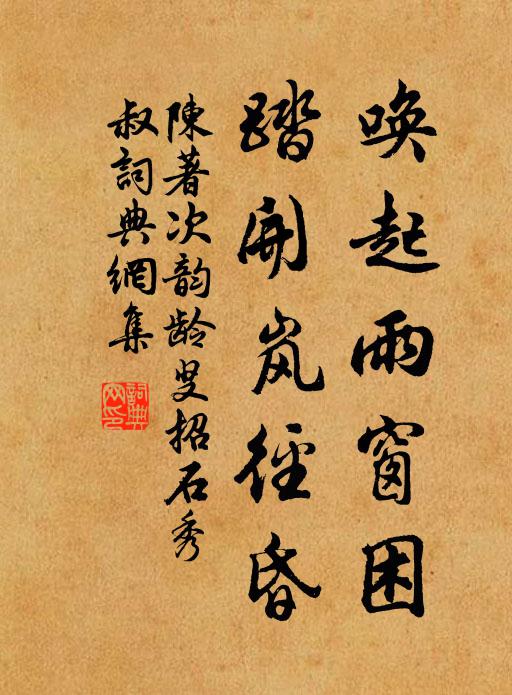 唤起雨窗困
踏开岚径昏
陳著次韵龄叟招石秀
叔詞典網集
詞典網印